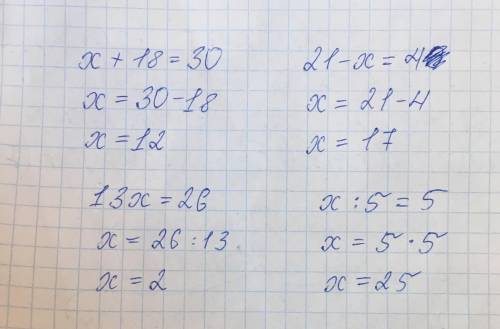 x + 18 = 30
x = 30 - 18
x = 12
21 - x = 4
x = 21 - 4
x = 17
13x = 26
x = 26 : 13
x = 2
x : 5 = 5
x = 5 · 5
x = 25